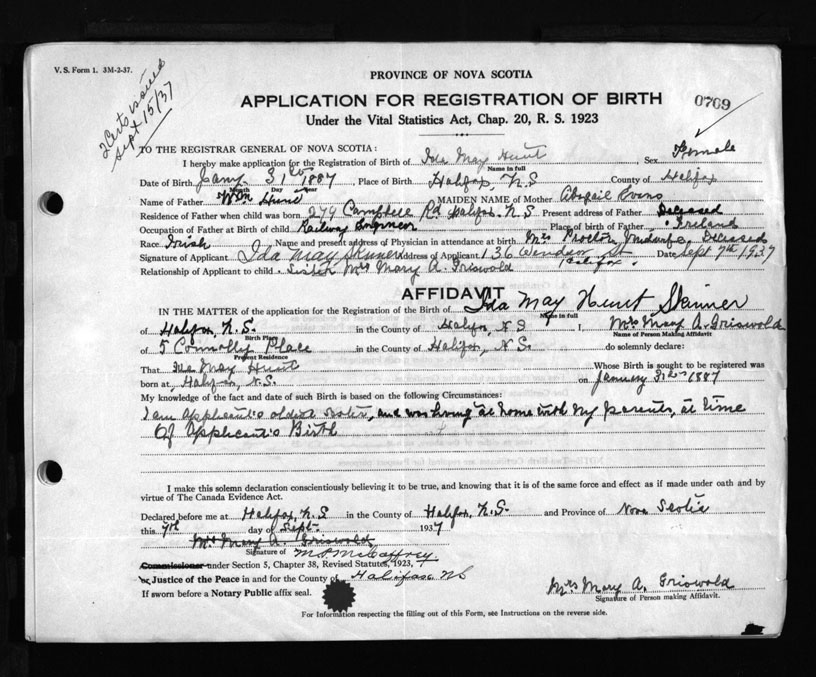 V. S. Form 1. 3M-2-37.
2 Certs issued
Sept. 15/37
PROVINCE OF NOVA SCOTIA
APPLICATION FOR REGISTRATION OF BIRTH
Under the Vital Statistics Act, Chap. 20, R. S. 1923
0769
TO THE REGISTRAR GENERAL OF NOVA SCOTIA:
I hereby make application for the Registration of Birth of Ida May Hunt Sex Female
Name in full
Date of Birth Jany 31st 1887, Place of Birth Halifax, N.S County of Halifax
Month Day Year
Name of Father Wm Hunt MAIDEN NAME of Mother Abigail
Residence of Father when child was born 279 Campbell Rd Halifax. N.S Present address of Father Deceased
Occupation of Father at Birth of child Railway Engineer Place of birth of Father Ireland
Race Irish Name and present address of Physician in attendance at birth Mrs Proctor, Midwife, Deceased
Signature of Applicant Ida May Skinner Address of Applicant 136 St Halifax. Date Sept 7th 1937
Relationship of Applicant to child Sister Mrs Mary A. Griswold
AFFIDAVIT
IN THE MATTER of the application for the Registration of the Birth of Ida May Hunt Skinner
Name in full
of Halifax, N.S. in the County of Halifax, N.S I, Mrs Mary A. Griswold
Birth Place
Name of Person Making Affidavit
of 5 Connolly Place in the County of Halifax, N.S. do solemnly declare:
Present Residence
That Ida May Hunt Whose Birth is sought to be registered was
born at Halifax, N.S. on January 31st 1887
My knowledge of the fact and date of such Birth is based on the following Circumstances:
I am applicant's oldest sister, and was living at home with my parents, at time
Of applicant's Birth
I make this solemn declaration conscientiously believing it to be true, and knowing that it is of the same force and effect as if made under oath and by
virtue of The Canada Evidence Act.
Declared before me at Halifax, N.S in the County of Halifax, N.S. and Province of Nova Scotia
this 7th day of Sept. 1937
Mrs Mary A. Griswold
Signature of M.P. McCaffrey
Commissioner under Section 5, Chapter 38, Revised Statutes, 1923,
or Justice of the Peace in and for the County of Halifax NS
If sworn before a Notary Public affix seal.
Mrs Mary A. Griswold
Signature of Person making Affidavit.
For Information respecting the filling out of this Form, see Instructions on the reverse side.